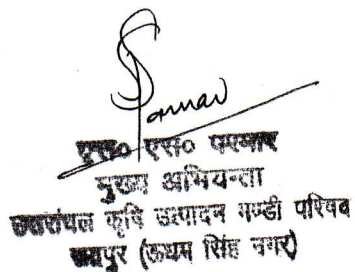 Parmar
एस० एस० परमार
मुख्य अभियन्ता
उत्तरांचल कृषि उत्पादन मण्डी परिषद
रूद्रपुर (ऊधम सिंह नगर)